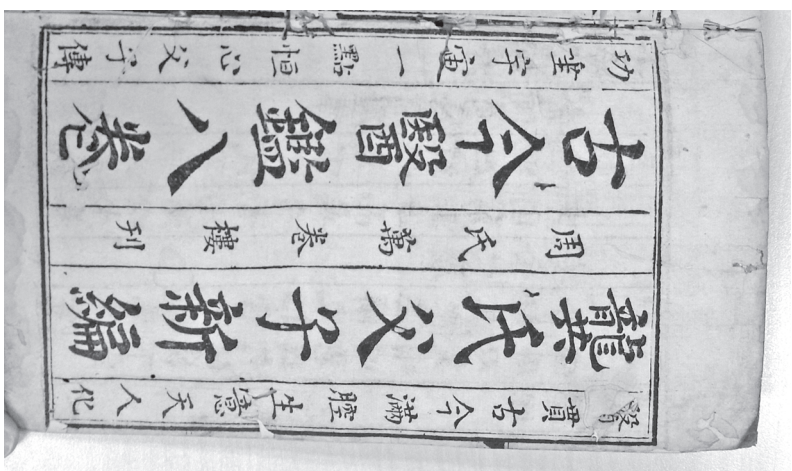 醫貫古今滿腔生意天人化
龔氏父子新編
周氏萬卷樓刊
古今醫鑑八卷
功垂宇宙一點恒心父子傳